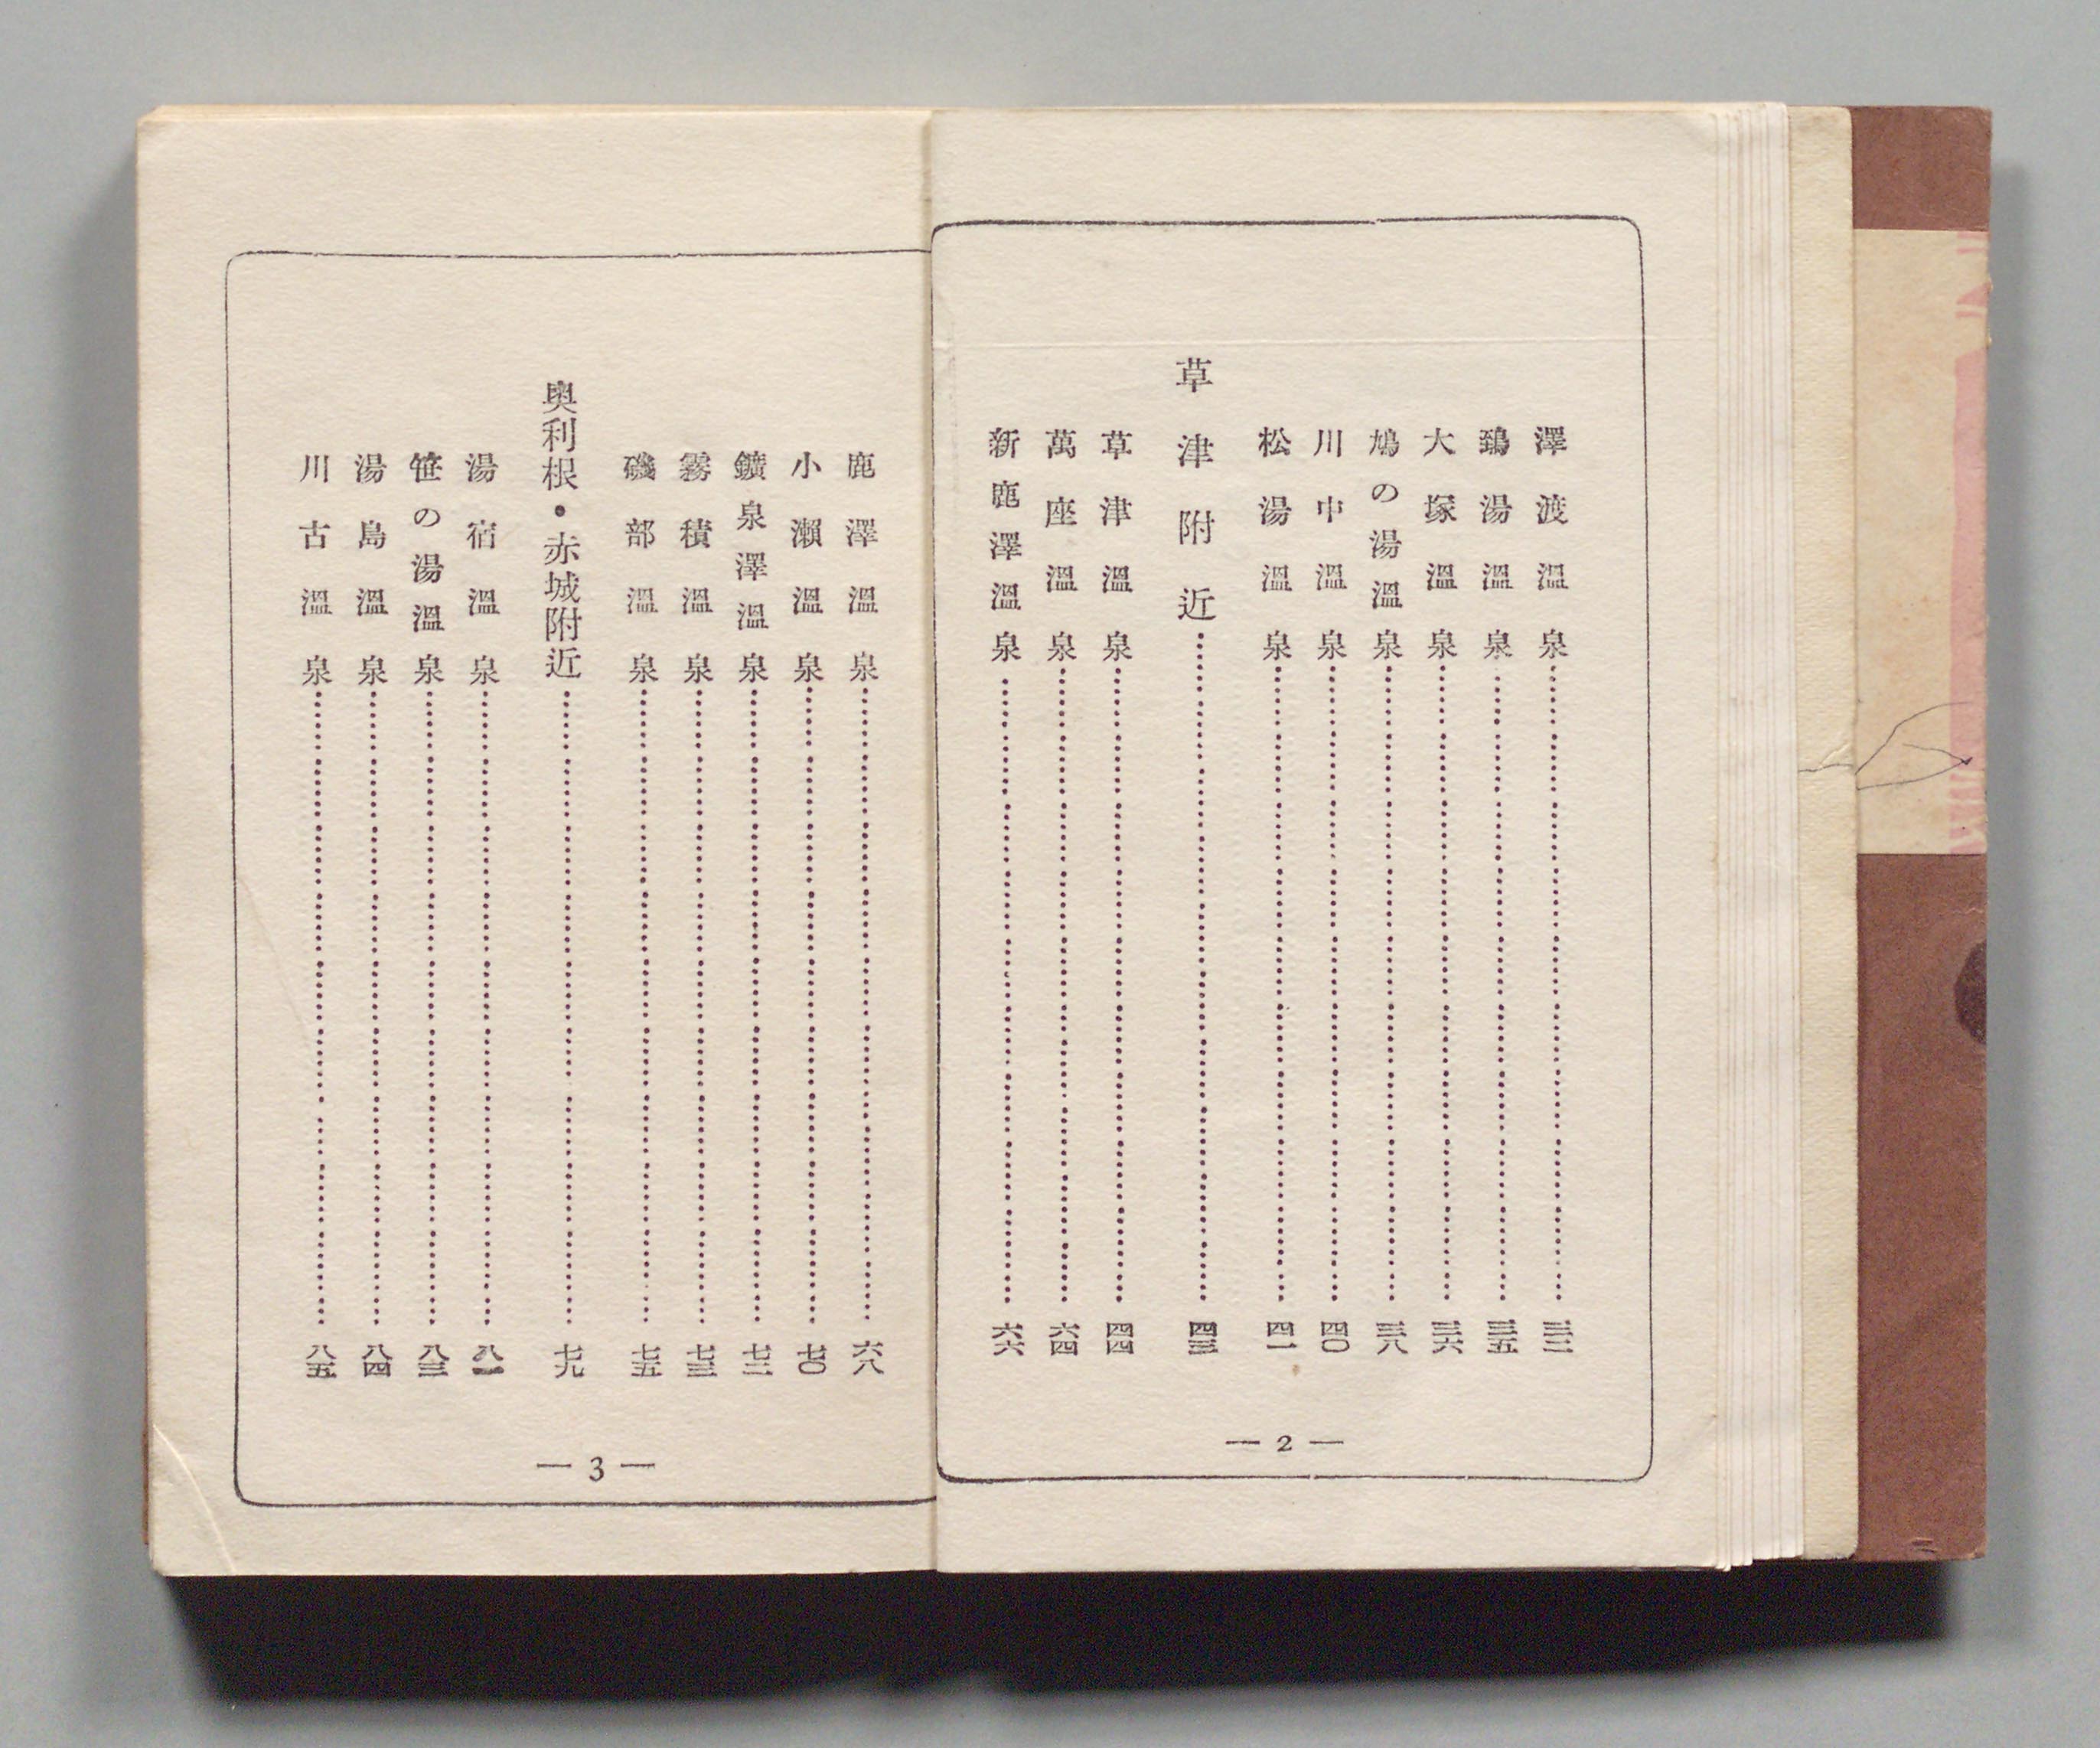 澤渡温泉……三二
鵄湯温泉……三五
大塚温泉……三六
鳩の湯温泉……三八
川中温泉……四〇
松湯温泉……四一
草津附近……四三
草津温泉……四四
萬座温泉……六四
新鹿澤温泉……六六
— 2 —
鹿澤温泉……六八
小瀬温泉……七〇
鑛泉澤温泉……七二
霧積温泉……七三
磯部温泉……七五
奥利根・赤城附近……七九
湯宿温泉……八一
笹の湯温泉……八三
湯島温泉……八四
川古温泉……八五
— 3 —